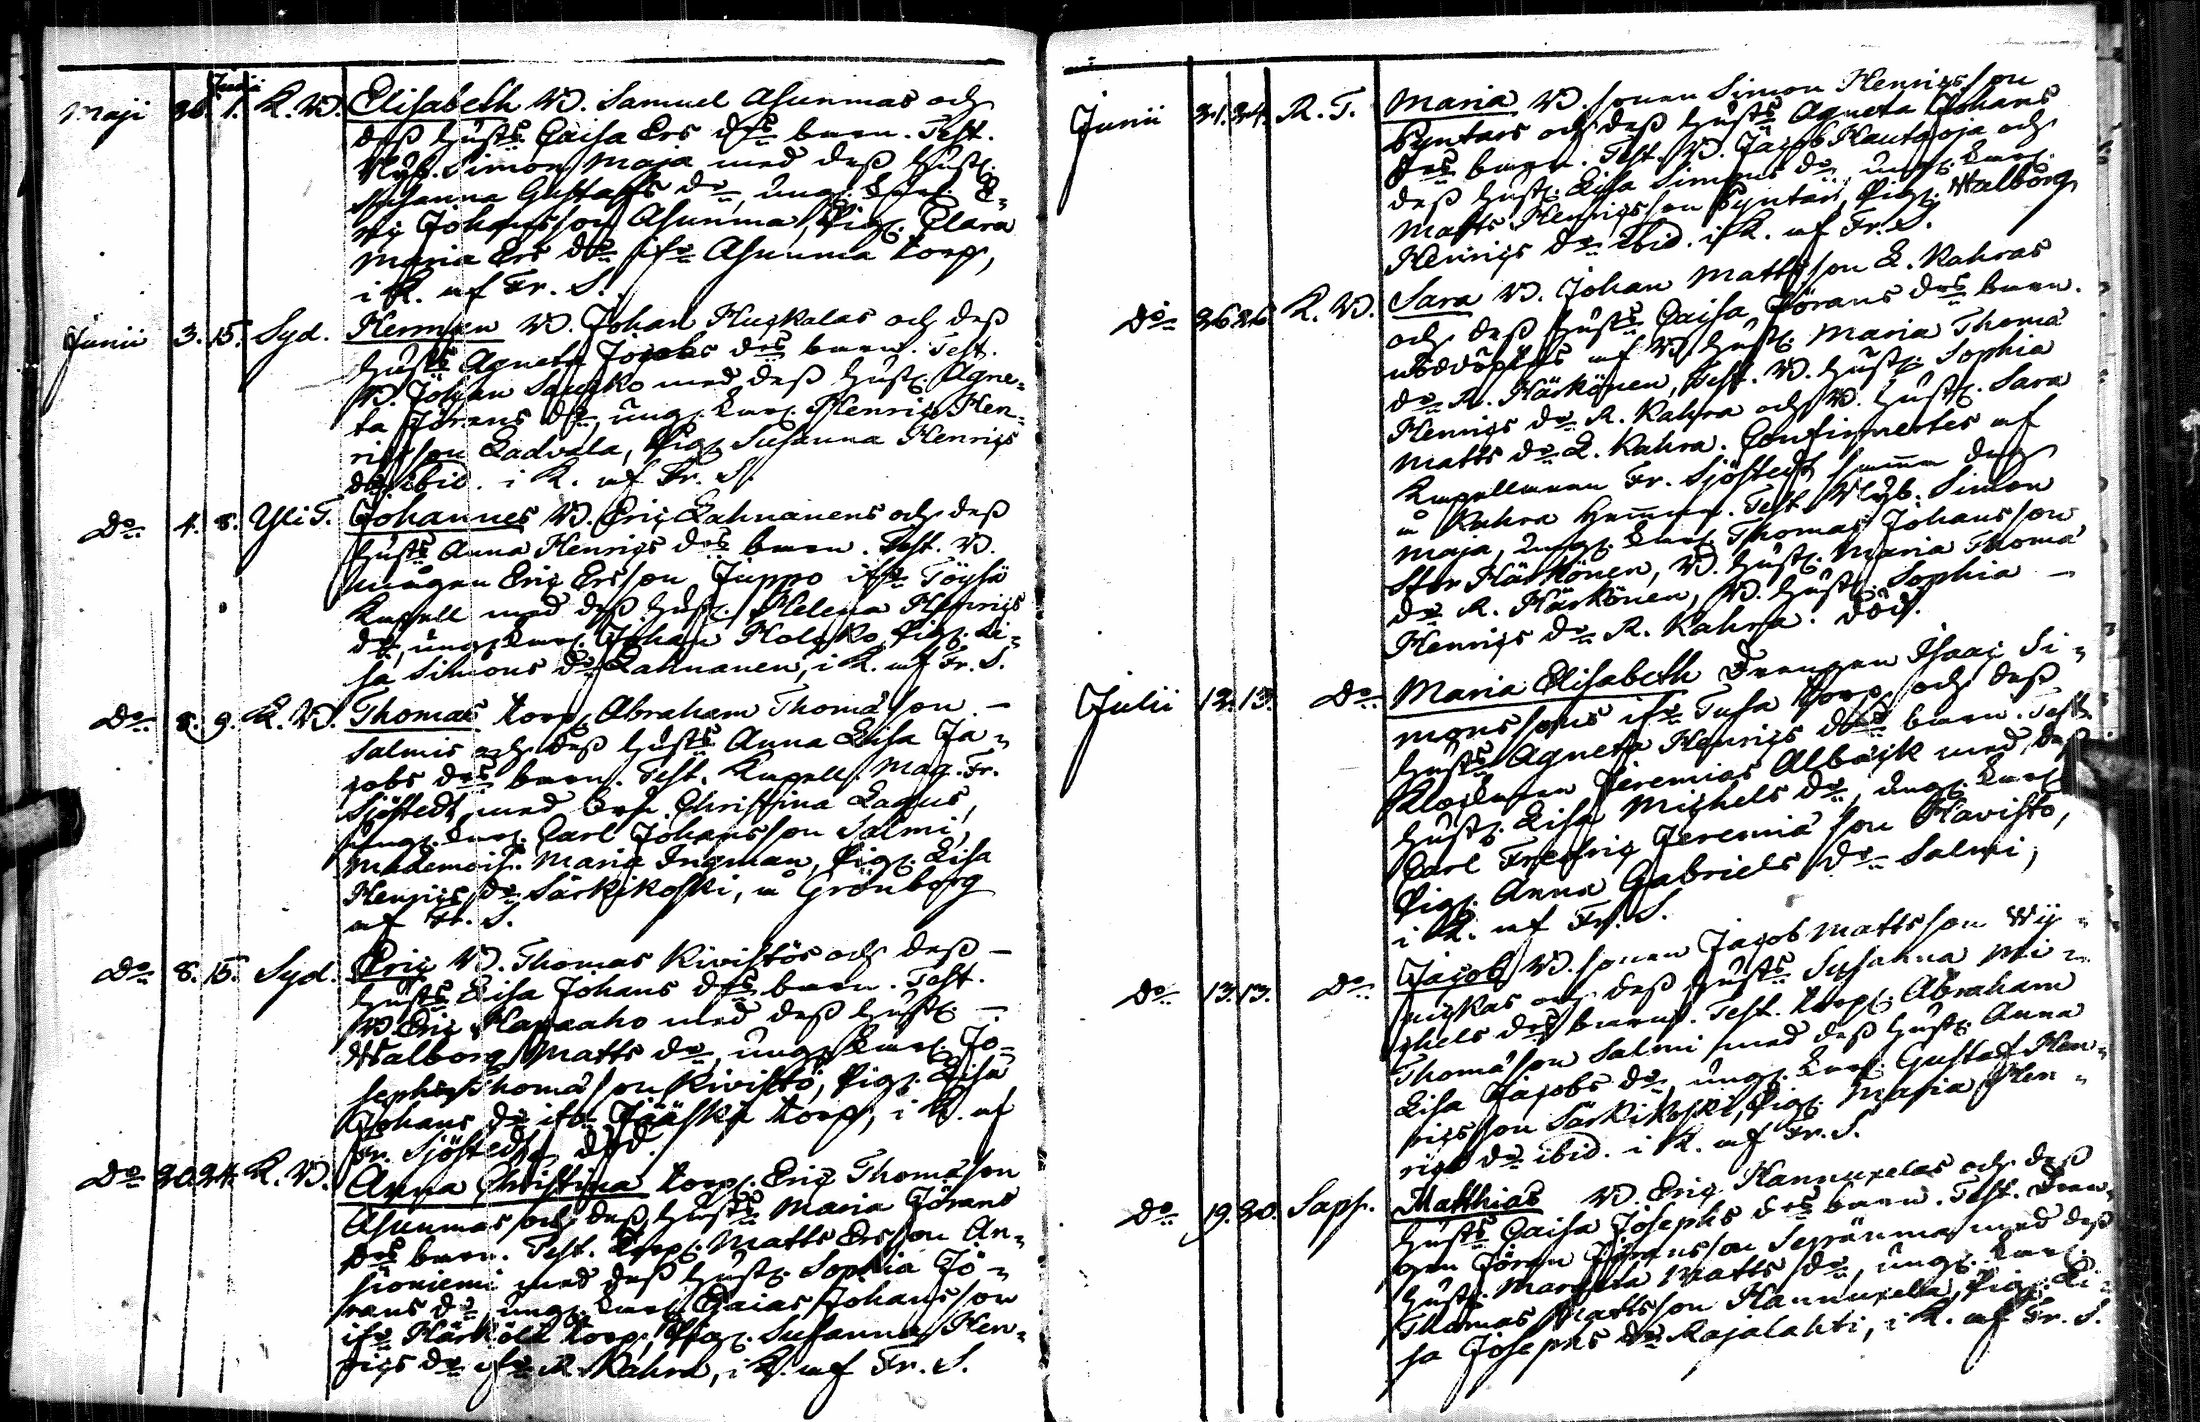 Junii
Maji 30. 1. K. W. Elisabeth W. Samuel Asunmas och
dess hust:s Caisa Ers d:rs barn. Test.
Nyb. Simon Maja med dess hust:
Susanna Gustafs d:r, ung. karl. E-
ric Johansson Asunma, Pig. Clara
Maria Ers d:r ifr. Asunma torp,
i K. af Fr. S.
Junii 3. 15. Syd. Herman W. Johan Huckalas och dess
hust:s Agneta Jacobs d:rs barn. Test.
W. Johan Saucko med dess hust: Agne-
ta Jörans d:r, ung. karl. Henric Hen-
ricsson Ladvala, Pig. Susanna Henrics
d:r ibid. i K. af Fr. S.
D:o 4. 8. Yli T. Johannes W. Eric Lahnanens och dess
hust:s Anna Henrics d:rs barn. Test. W.
mågen Eric Ersson Juppo ifr. Töysä
Kapell med dess hust: Helena Henrics
d:r, ung. karl. Johan Holcko, Pig. Li-
sa Simons d:r Lahnanen, i K. af Fr. S.
D:o 8. 9. K. W. Thomas torp. Abraham Thomasson
Salmis och dess hust:s Anna Lisa Ja-
cobs d:rs barn. Test. Kapell. Mag. Fr.
Sjöstedt med Christina Lagus,
ung. karl. Carl Johansson Salmi,
Mademois. Maria Ingman, Pig. Lisa
Henrics d:r Särkikoski, å Grönborg
af Fr. S.
D:o 8. 15. Syd. Eric W. Thomas Kivistös och dess
hust:s Lisa Johans d:rs barn. Test.
W. Eric Hapaaho med dess hust:
Walborg Matts d:r, ung. karl. Jo-
seph Thomasson Kivistö, Pig. Lisa
Johans d:r ifr. Jääskä torp, i K. af
Fr. Sjöstedt. död.
D:o 20. 24. K. W. Anna Christina torp. Eric Thomasson
Asunmas och dess hust:s Maria Jörans
d:rs barn. Test. torp. Matts Ersson An-
sioniemi med dess hust: Sophia Jö-
rans d:r, ung. karl. Esaias Johansson
ifr. Härkölä torp, Pig. Susanna Hen-
rics d:r ifr. R. Kahra, i K. af Fr. S.
Junii 21. 24. R. T. Maria W. sonen Simon Henricsson
Pyntars och dess hust:s Agneta Johans
d:rs barn. Test. W. Jacob Hautaoja och
dess hust: Lisa Simons d:r, ung. karl.
Matts Henricsson Pyntäri, Pig. Walborg
Henrics d:r ibid. i K. af Fr. S.
D:o 26. 26. K. W. Sara W. Johan Mattsson L. Kahras
och dess hust:s Caisa Jörans d:rs barn.
nöddöptes af W. hust: Maria Thomä
d:r R. Härkönen, Test. W. hust: Sophia
Henrics d:r R. Kahra och W. hust: Sara
Matts d:r L. Kahra. Confirmertes af
Kapellanen Fr. Sjöstedt samma dag
å Kahra hemman. Test. Nyb. Simon
Maja, ung. karl. Thomas Johansson
Stor Härkönen, W. hust: Maria Thomä
d:r R. Härkönen, W. hust: Sophia
Henrics d:r R. Kahra. död.
Julii 12. 13. D:o Maria Elisabeth Drengen Isaac Si-
monssons ifr. Tusa torp och dess
hust:s Agneta Henrics d:rs barn. Test.
Klockaren Jeremias Albäck med dess
hust: Lisa Michels d:r, ung. karl.
Carl Fredric Jeremiä son Havisto,
Pig. Anna Gabriels d:r Salmi,
i K. af Fr. S.
D:o 13. 13. D:o Jacob W. sonen Jacob Mattsson Wij-
nickas och dess hust:s Susanna Mi-
chels d:rs barn. Test. torp. Abraham
Thomasson Salmi med dess hust: Anna
Lisa Jacobs d:r, ung. karl. Gustaf Hen-
ricsson Särkikoski, Pig. Maria Hen-
rics d:r ibid. i K. af Fr. S.
D:o 19. 20. Sapp. Matthias W. Eric Hannuxelas och dess
hust:s Caisa Josephs d:rs barn. Test. Dren-
gen Jöran Jöransson Seppänmaa med dess
hust: Margeta Matts d:r, ung. karl.
Thomas Mattsson Hannuxela, Pig. Li-
sa Josephs d:r Rajalahti, i K. af Fr. S.